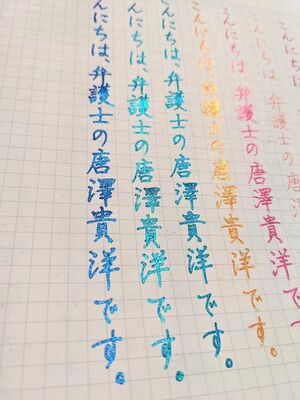 こんにちは
こんにちは、弁護士の
こんにちは、弁護士の唐澤貴洋で
こんにちは、弁護士の唐澤貴洋です。
んにちは、弁護士の唐澤貴洋です。
んにちは、弁護士の唐澤貴洋です。
んにちは、弁護士の唐澤貴洋です。